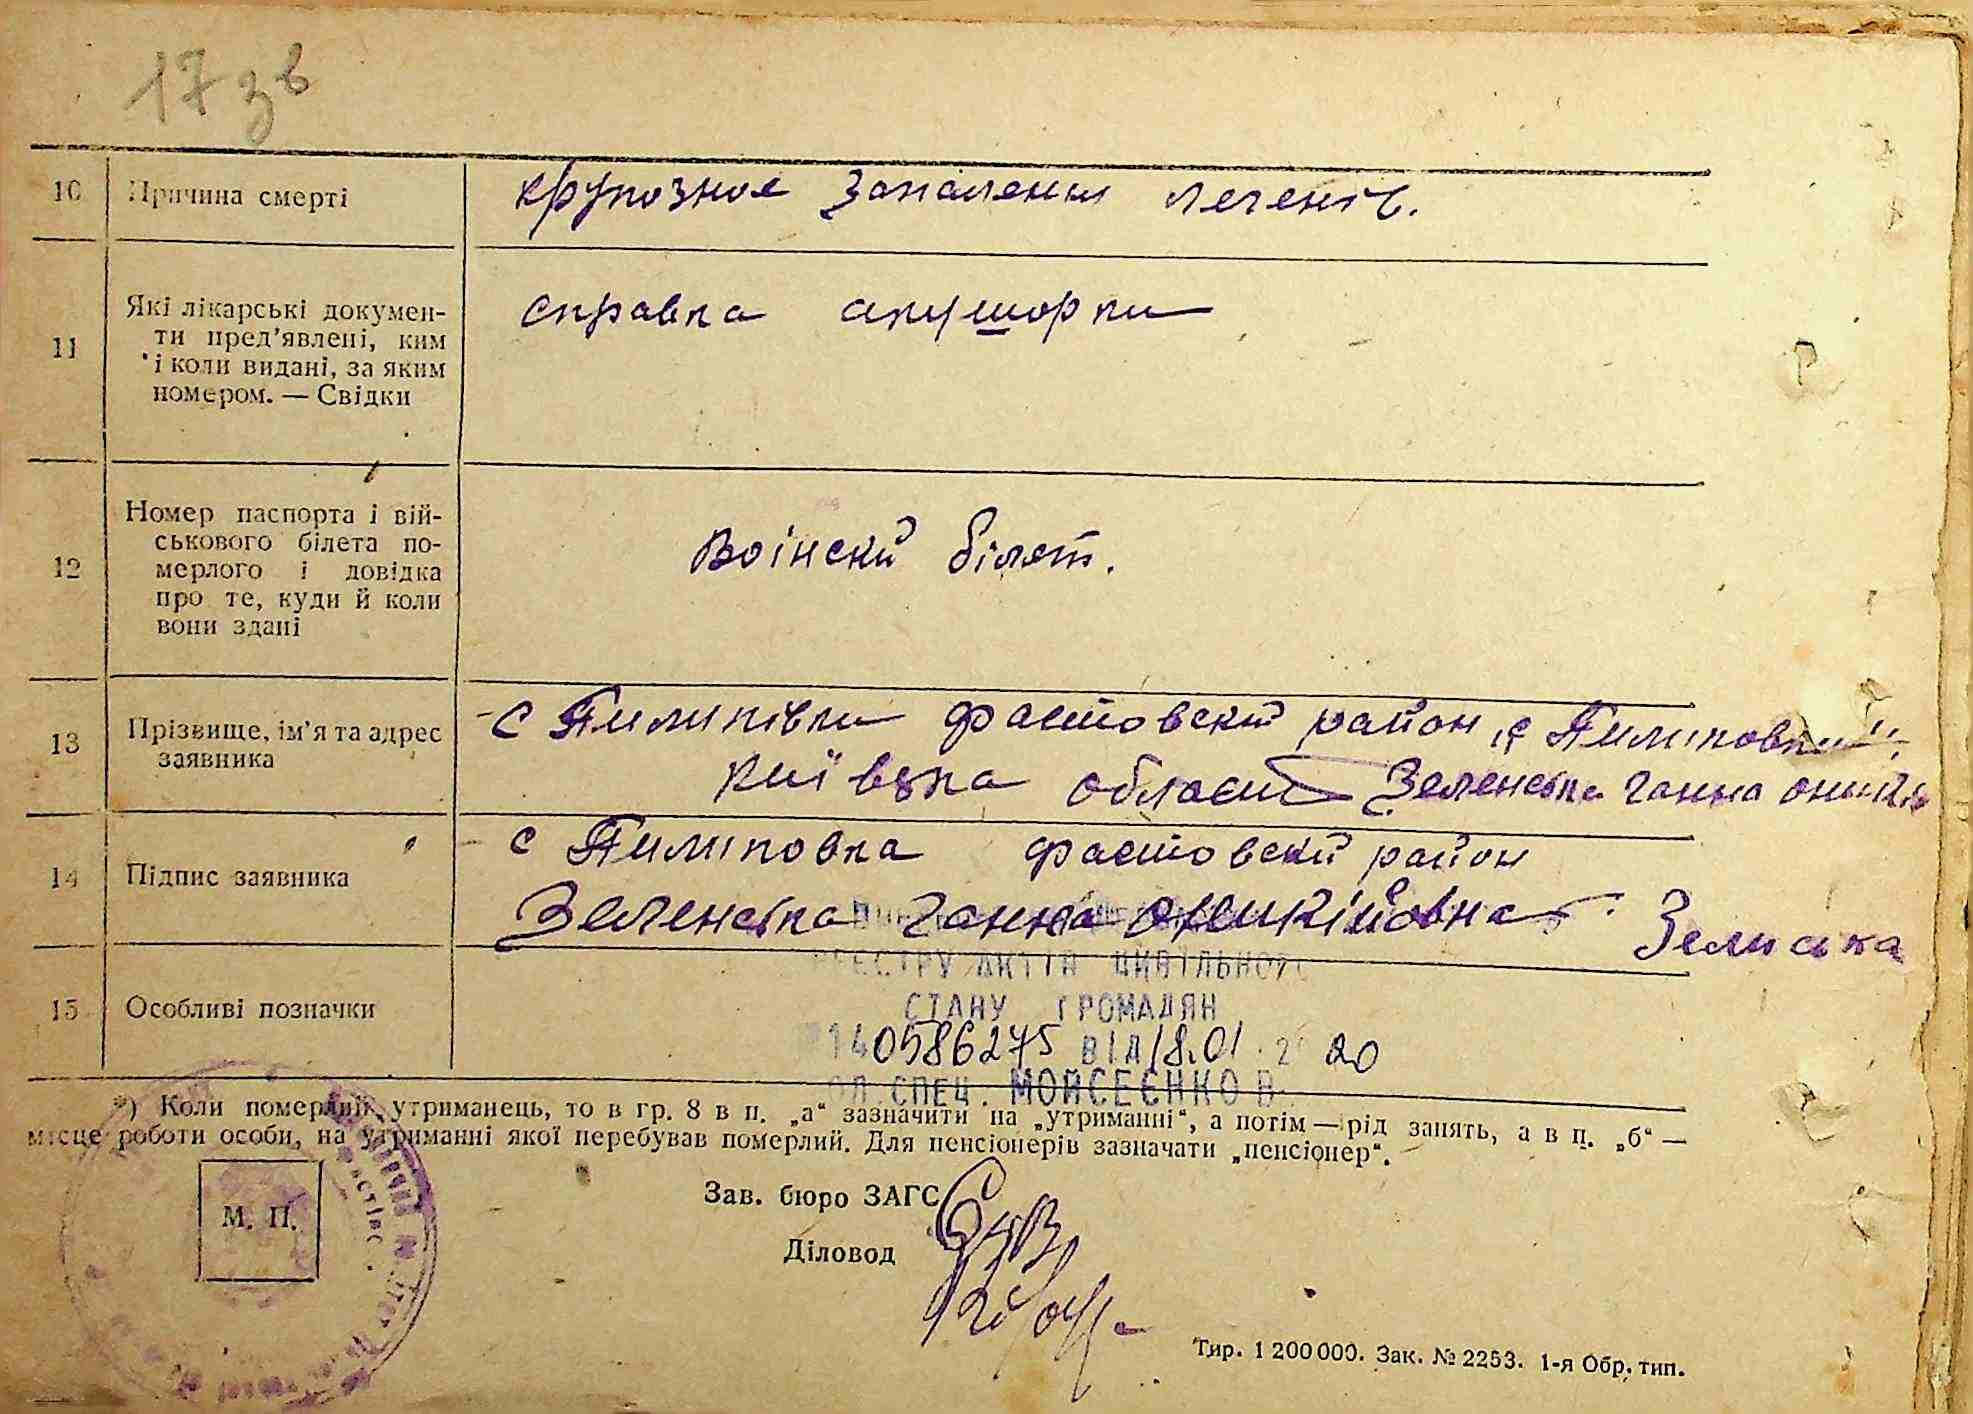 17 зв
10 Причина смерті крупозное запаления легенів.
11 Які лікарські докумен-
ти пред'явлені, ким
і коли видані, за яким
номером. — Свідки
справка акушорки
12 Номер паспорта і вій-
ськового білета по-
мерлого і довідка
про те, куди й коли
вони здані
Воінский білет.
13 Прізвище, ім'я та адрес
заявника
с Пилипівки фастовский район с Пилиповки
київська область Зеленська Ганна
14 Підпис заявника
с Пилиповка фастовский район
Зеленська Ганна Оникійовна Зелиска
15 Особливі позначки
РЕЄСТРУ АКТІВ ЦИВІЛЬНОГО
СТАНУ ГРОМАДЯН
140586275 ВІД 18.01.2020
СПЕЦ. МОЙСЕЄНКО В.
*) Коли померлий утриманець, то в гр. 8 в п. „а“ зазначити на „утриманні“, а потім — рід занять, а в п. „б“ —
місце роботи особи, на утриманні якої перебував померлий. Для пенсіонерів зазначати „пенсіонер“.
М. П.
Зав. бюро ЗАГС
Діловод
Тир. 1 200 000. Зак. № 2253. 1-я Обр. тип.